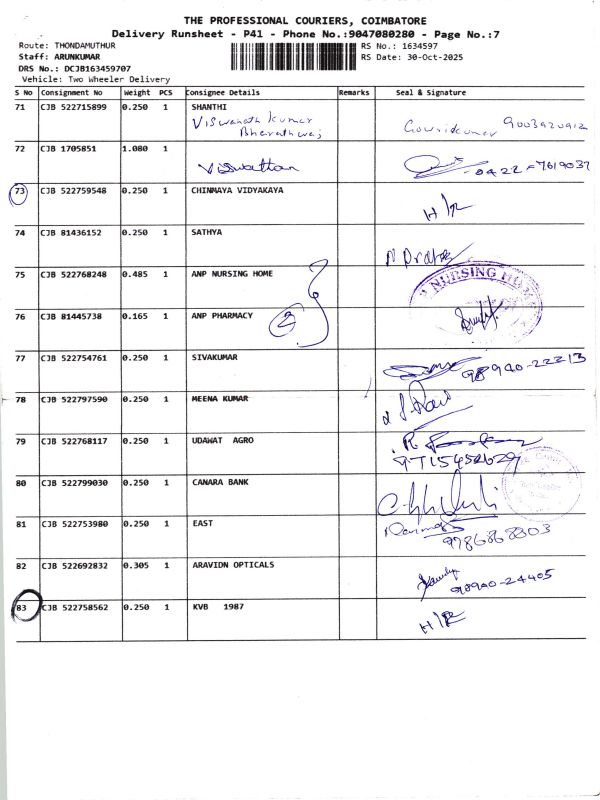 THE PROFESSIONAL COURIERS, COIMBATORE
Delivery Runsheet - P41 - Phone No.:9047080280 - Page No.:7
Route: THONDAMUTHUR
Staff: ARUNKUMAR
DRS No.: DCJB163459707
Vehicle: Two Wheeler Delivery
RS No.: 1634597
RS Date: 30-Oct-2025
S No Consignment No Weight PCS Consignee Details Remarks Seal & Signature
71 CJB 522715899 0.250 1 SHANTHI
Viswanath Kumar
Bharathwaj
Gowrikumar 9003920912
72 CJB 1705851 1.080 1
Viswattan
0422-7619037
73 CJB 522759548 0.250 1 CHINMAYA VIDYAKAYA
H/R
74 CJB 81436152 0.250 1 SATHYA
75 CJB 522768248 0.485 1 ANP NURSING HOME
NURSING HOME
76 CJB 81445738 0.165 1 ANP PHARMACY
2
77 CJB 522754761 0.250 1 SIVAKUMAR
98940-22213
78 CJB 522797590 0.250 1 MEENA KUMAR
79 CJB 522768117 0.250 1 UDAWAT AGRO
9715452629
80 CJB 522799030 0.250 1 CANARA BANK
81 CJB 522753980 0.250 1 EAST
9786868803
82 CJB 522692832 0.305 1 ARAVIDN OPTICALS
98940-24405
83 CJB 522758562 0.250 1 KVB 1987
H/R